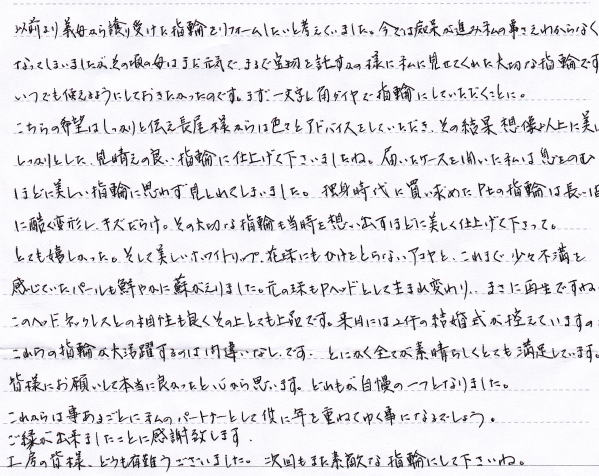 以前より義母から譲り受けた指輪をリフォームしたいと考えていました。今では痴呆が進み私の事さえわからなく
なってしまいましたが、その頃の母はまだ元気で、まるで の様に私に見せてくれた大切な指輪です
いつでも使えるようにしておきたかったのです。まず一文字と角ダイヤで指輪にしていただくことに。
こちらの希望はしっかりと伝え長尾様からは色々とアドバイスをしていただき、その結果想像以上に美し
しっかりとした、見晴えの良い指輪に仕上げて下さいましたね。届いたケースを開いた私は息をのむ
ほどに美しい指輪に思わず見とれてしまいました。独身時代に買い求めたPtの指輪は長い
に酷く変形し、キズだらけ。その大切な指輪を当時を想い出すほどに美しく仕上げて下さって。
とても嬉しかった。そして美しいホワイトリップ、花珠にもひけをとらないアコヤと、これまで少々不満を
感じていたパールも鮮やかに蘇がえりました。元の珠もPヘッドとして生まれ変わり、まさに再生ですね
このヘッドネックレスとの相性も良くその上とても上品です。来月には2件の結婚式が控えていますの
これらの指輪が大活躍するのは間違いなしです。とにかく全てが素晴らしくとても満足しています。
皆様にお願いして本当に良かったと心から思います。どれもが自慢の一つとなりました。
これからは事あるごとに私のパートナーとして供に年を重ねてゆく事になるでしょう。
ご縁が出来ましたことに感謝致します。
工房の皆様、どうも有難うございました。次回もまた素敵な指輪にして下さいね。